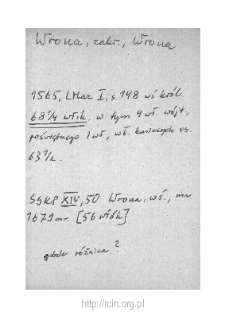 Wrona, zakr., Wrona
1565, LMaz I, s. 148 wś król.
68 1/4 włók. w tym 4 wł. wójt.
1 wł., wł. kmiecych os.
63 1/2.
SGKP XIV, 50 Wrona, wś., mr
1679 mr [56 włók]
gdzie różnica?
http://rcin.org.pl